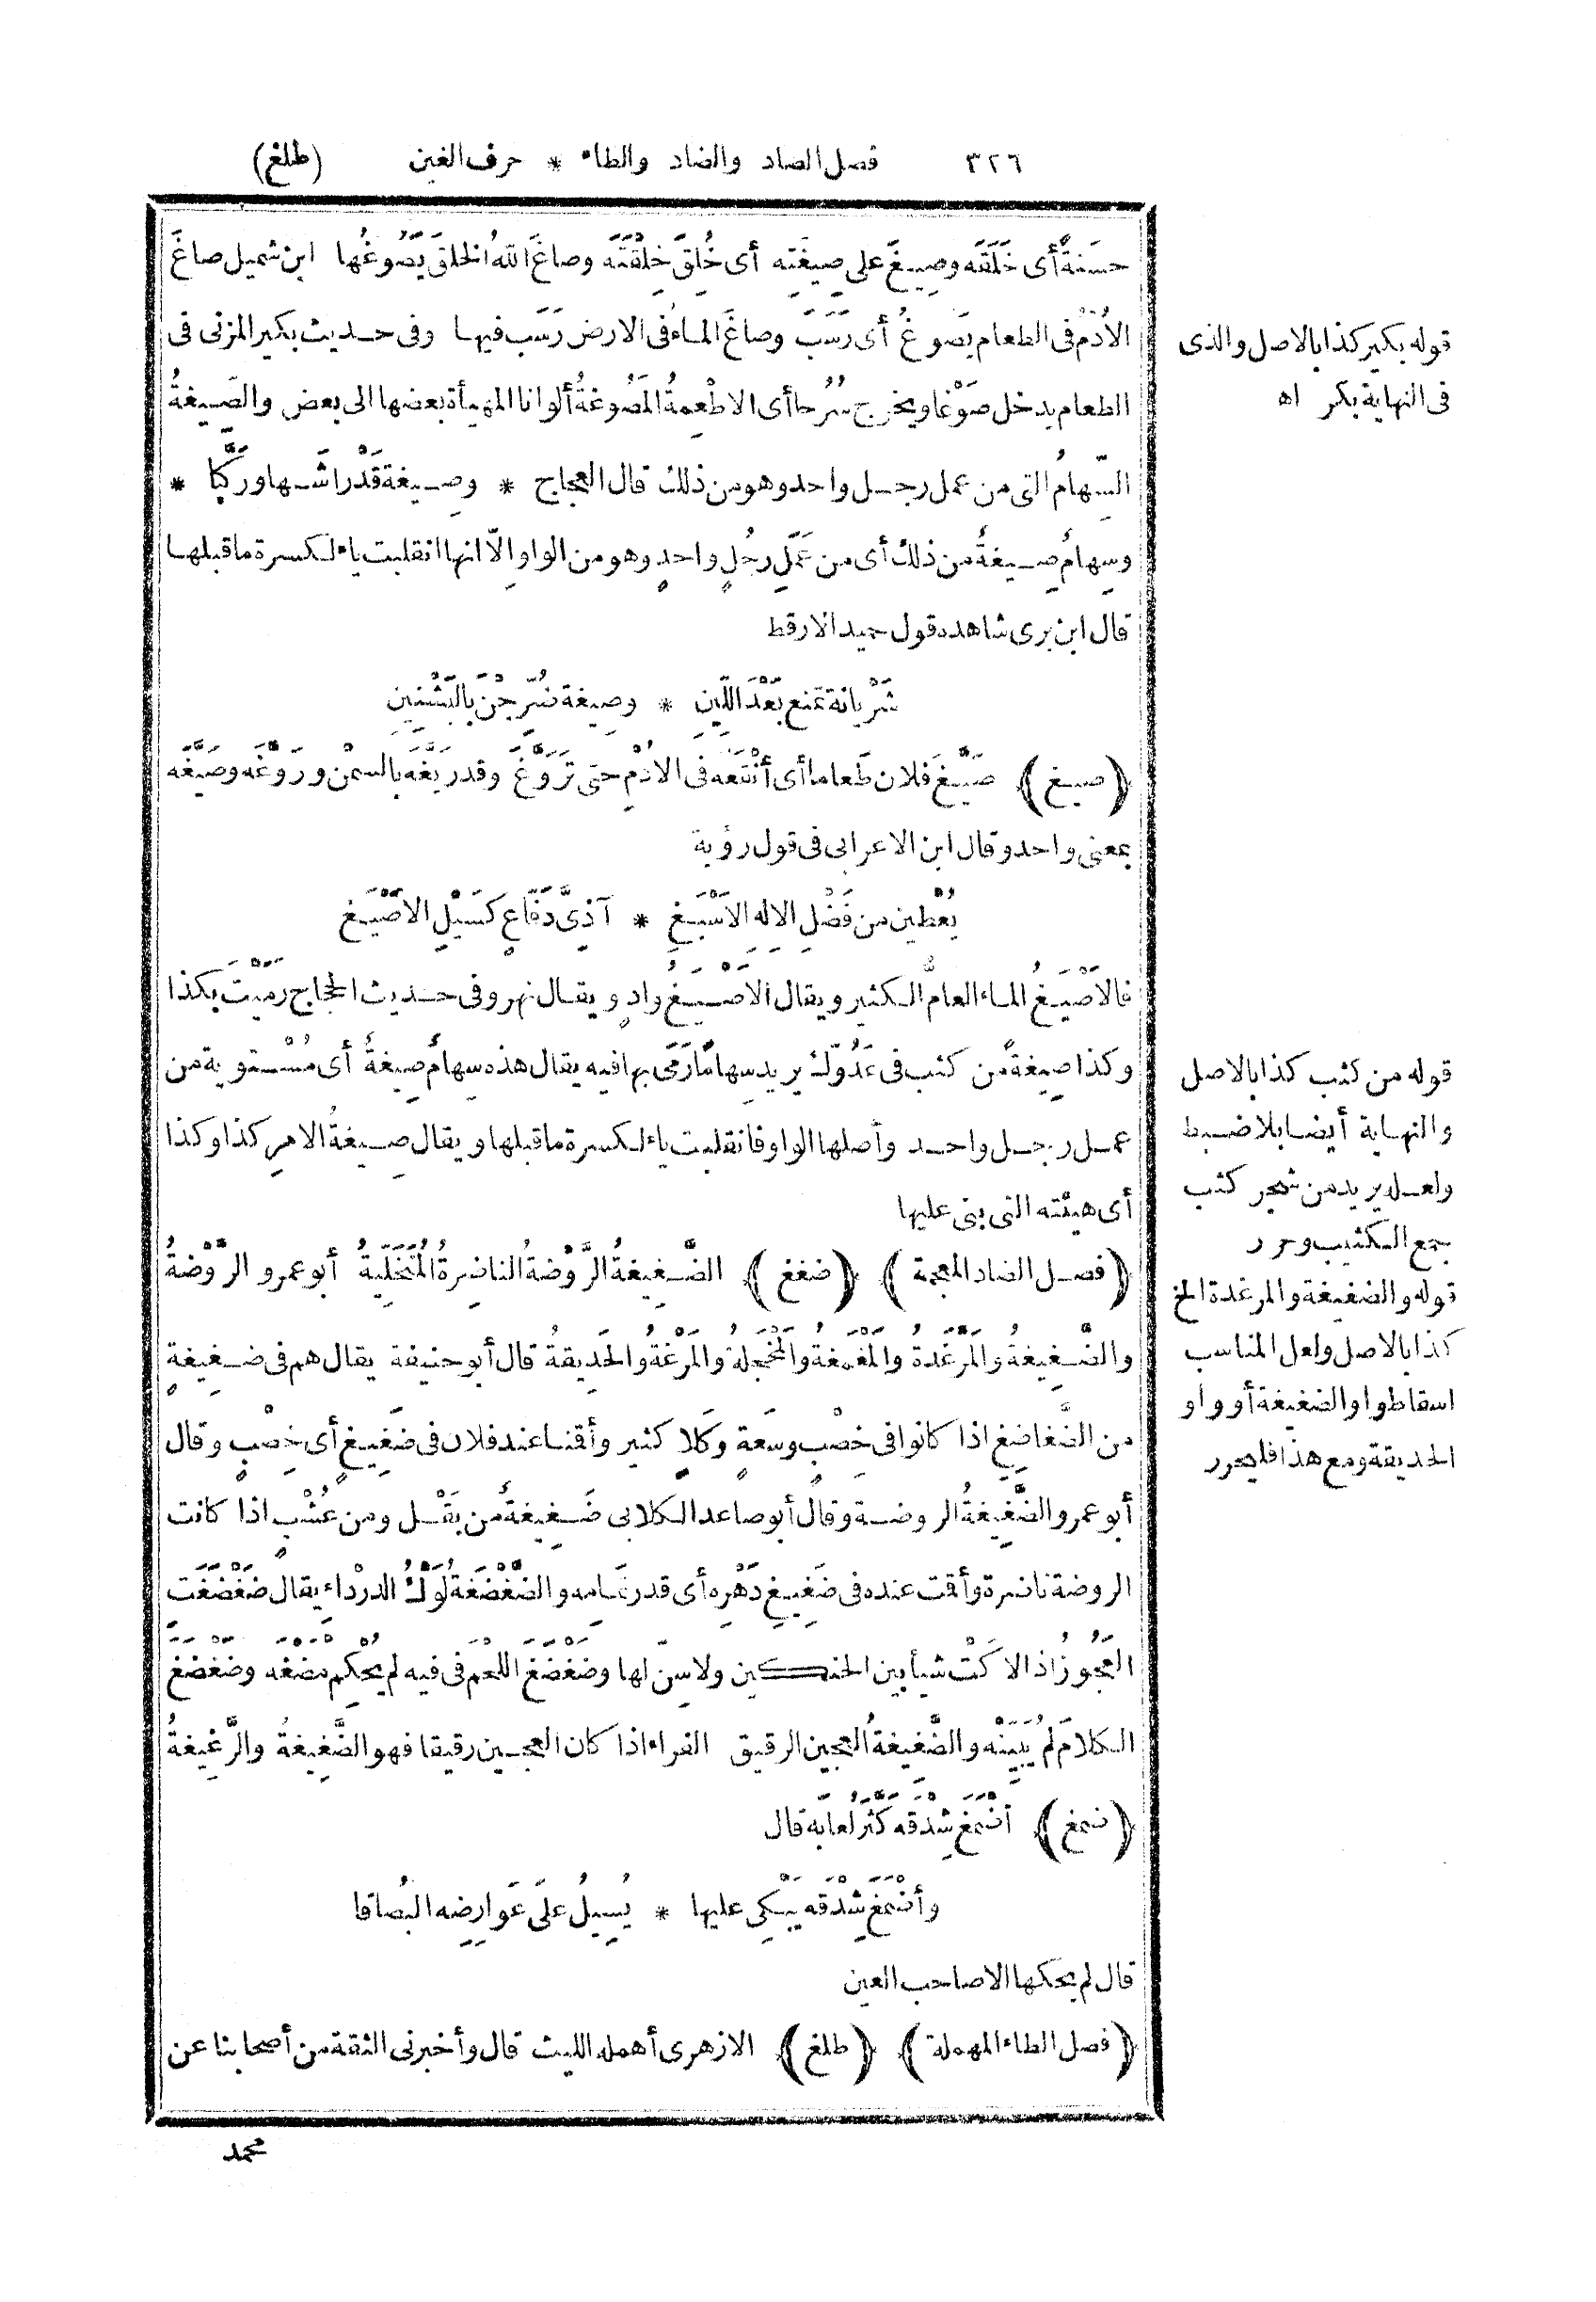 ٣٢٦ فصل الصاد والضاد والطاء * حرف الغين (طلغ)
حسَنةً أى خَلَقَه وصِيغَ على صِيغَتِه أى خُلِقَ خِلْقَتَه وصاغَ اللهُ الخلقَ يَصُوغُها ابن شميل صاغَ
الاُدْمُ فى الطعام يَصُوغُ أى رَسَبَ وصاغَ الماءُ فى الارض رَسَب فيها وفى حديث بكير المزنى فى
الطعام يدخل صَوْغا ويخرج سُرُحا أى الاطْعِمةُ المَصُوغةُ ألوانا المهيأة بعضها الى بعض والصِّيغةُ
السِّهامُ التى من عمل رجل واحد وهو من ذلك قال العجاج * وصِيغةً قَدْ راشَها وركَّبا *
وسِهامٌ صِيغةٌ من ذلك أى من عَمَلِ رجُلٍ واحدٍ وهو من الواوِ الّا انها انقلبت ياء لكسرة ما قبلها
قال ابن برى شاهده قول حميد الارقط
شَرْيانة تمنع بَعْدَ اللِّينِ * وصِيغة ضُرِّجْنَ بالتَّسْنِينِ
(صيغ) صَيَّغَ فلان طَعاما أى أنْقَعَه فى الاُدْمِ حتى تَرَوَّغَ وقد رَيَّغَه بالسمْن ورَوَّغَه وصَيَّغَه
بمعنى واحد وقال ابن الاعرابى فى قول رؤبة
يُعْطِين من فَضْلِ الالِه الاَسْبَغِ * آذِىَّ دَفّاعٍ كَسَيْلِ الاَصْيَغِ
فالاَصْيَغُ الماء العامُّ الكثير ويقال الاَصْيَغُ وادٍ ويقال نهر وفى حديث الحجاج رَمَيْتَ بكذا
وكذا صِيغةً من كثب فى عَدُوِّكَ يريد سِهامًا رَمَى بها فيه يقال هذه سِهامٌ صِيغةٌ أى مُسْتوية من
عمل رجل واحد وأصلها الواو فانقلبت ياء لكسرة ما قبلها ويقال صِيغةُ الامرِ كذا وكذا
أى هيئته التى بنى عليها
(فصل الضاد المعجمة) (ضغغ) الضَّغِيغةُ الرَّوْضةُ الناضِرةُ المُتَخَلِّيةُ أبو عمرو الرَّوْضةُ
والضَّغِيغةُ والمَرْغَدةُ والمَغْمَغةُ والمَخْجَلةُ والمَرْغةُ والحَدِيقةُ قال أبو حنيفة يقال هم فى ضَغِيغةٍ
من الضَّغاضِغِ اذا كانوا فى خِصْبٍ وسَعَةٍ وكَلإ كثير وأقنا عند فلان فى ضَغِيغٍ أى خِصْبٍ وقال
أبو عمرو الضَّغِيغةُ الروضة وقال أبو صاعد الكلابى ضَغِيغةٌ من بَقْل ومن عُشْبٍ اذا كانت
الروضة ناضرة وأقت عنده فى ضَغِيغِ دَهْرِه أى قدر تَمامِه والضَّغْضَغةُ لَوْكُ الدرْداءِ يقال ضَغْضَغَتِ
العَجُوزُ اذا لاكَتْ شيأ بين الحنكين ولا سِنّ لها وضَغْضَغَ اللحْمَ فى فيه لم يُحْكِمْ مَضْغَه وضَغْضَغَ
الكلامَ لم يُبَيِّنْه والضَّغِيغةُ العجين الرقيق الفراء اذا كان العجين رقيقا فهو الضَّغِيغةُ والرَّغِيغةُ
(ضمغ) أضْمَغَ شِدْقُه كَثُرَ لُعابُه قال
وأضْمَغَ شِدْقُه يَبْكِى عليها * يُسِيلُ علَى عَوارِضِه البُصاقا
قال لم يحكها الا صاحب العين
(فصل الطاء المهملة) (طلغ) الازهرى أهمله الليث قال وأخبرنى الثقة من أصحابنا عن
محمد
قوله بكير كذا بالاصل والذى
فى النهاية بكر اه
قوله من كثب كذا بالاصل
والنهاية أيضا بلا ضبط
ولعله يريد من شجر كثب
جمع الكثيب وحرر
قوله والضغيغة والمرغدة الخ
كذا بالاصل ولعل المناسب
اسقاط واو والضغيغة أو واو
الحديقة ومع هذا فليحرر